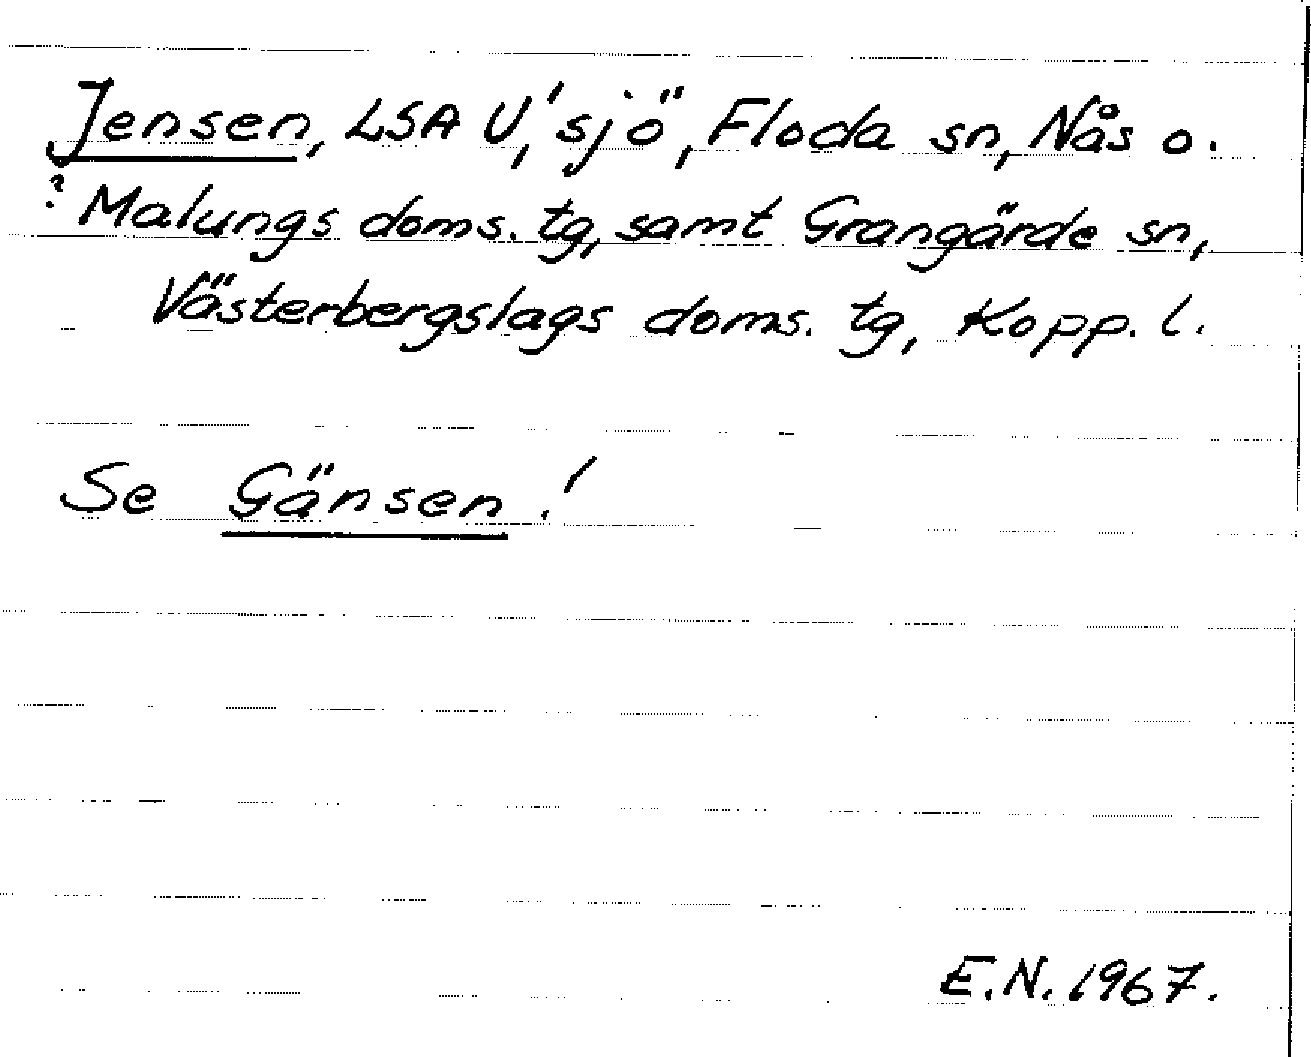 Jensen, LSA U, 'sjö", Floda sn, Nås o.
? Malungs doms. tg, samt Grangärde sn,
Västerbergslags doms. tg, Kopp. l.
Se Gänsen!
E.N. 1967.